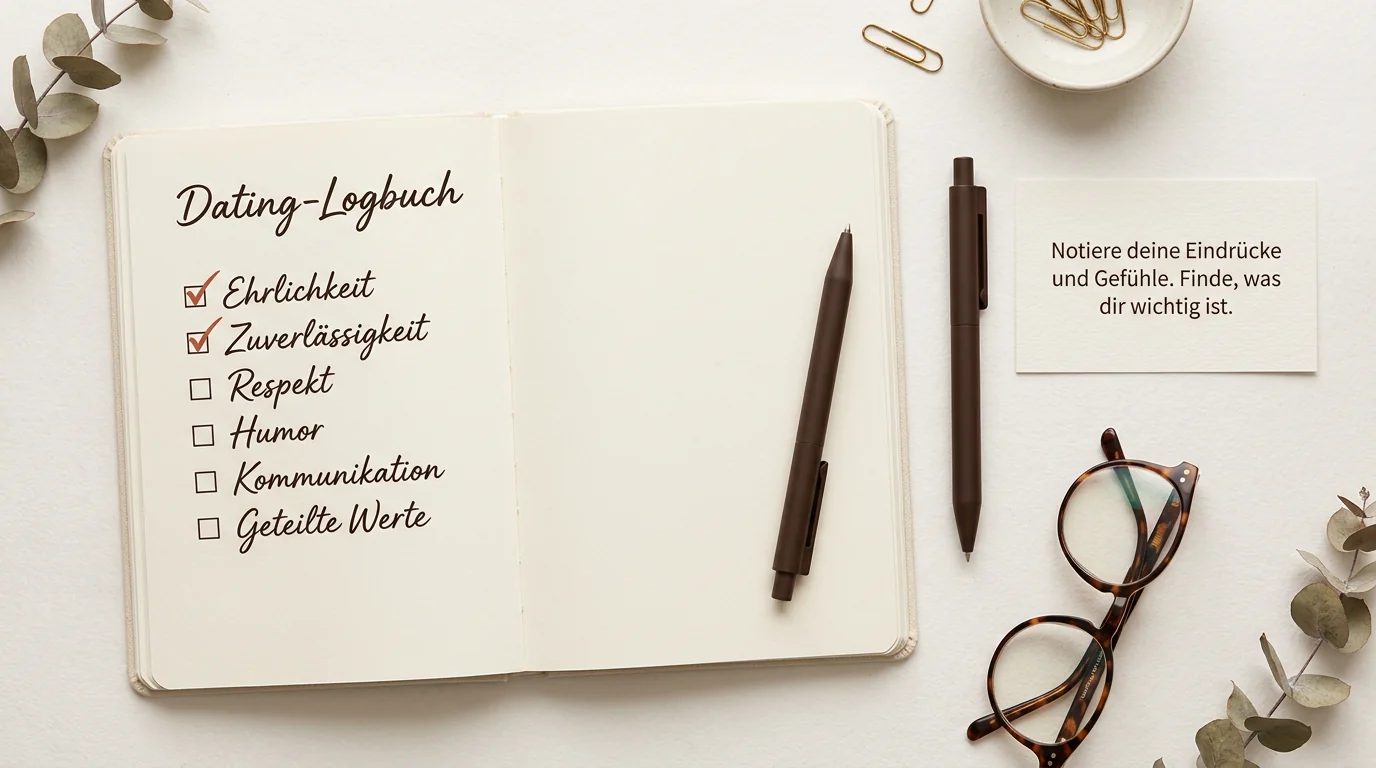 Dating-Logbuch
Ehrlichkeit
Zuverlässigkeit
Respekt
Humor
Kommunikation
Geteilte Werte
Notiere deine Eindrücke
und Gefühle. Finde, was
dir wichtig ist.